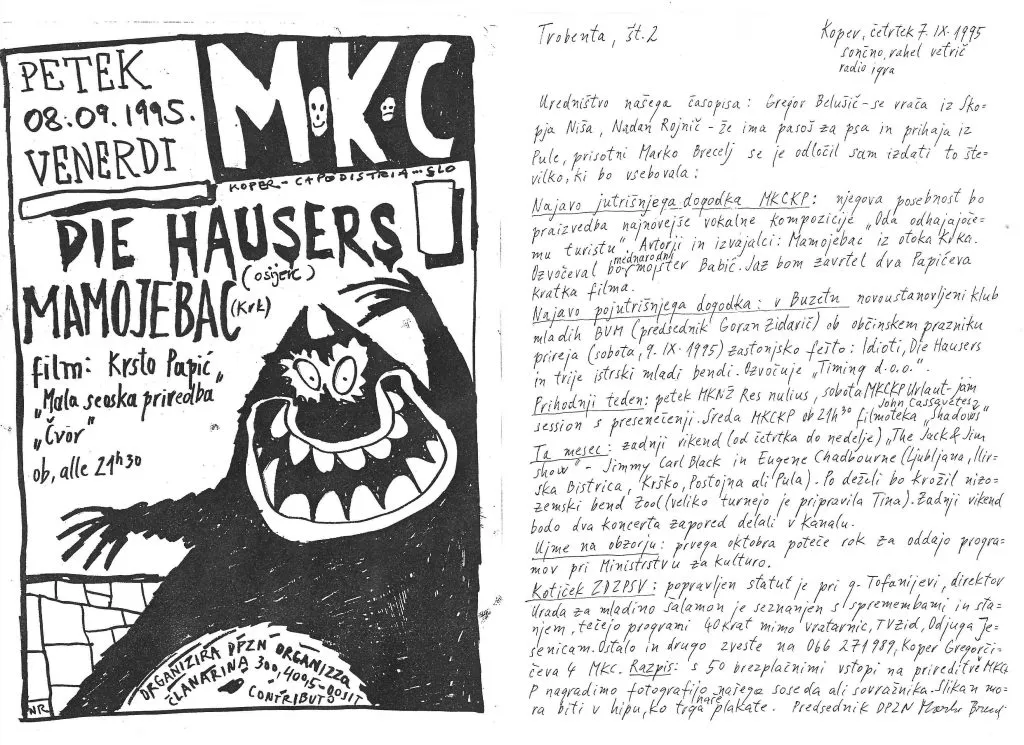 PETEK
08.09.1995.
VENERDI
M·K·C
KOPER-CAPODISTRIA-SLO
DIE HAUSERS
(osijerc)
MAMOJEBAC (Krk)
film: Krsto Papić
„Mala seoska priredba
„Čvor"
ob, alle 21h30
ORGANIZIRA DPZN ORGANIZZA
ČLANARINA 300,
CONTRIBUTO
NR
Trobenta, št.2
Koper, četrtek 7.IX.1995
sončno, rahel vetrič
radio igra
Uredništvo našega časopisa: Gregor Belušič-se vrača iz Sko-
pja Niša, Nadan Rojnič-že ima pasoš za psa in prihaja iz
Pule, prisotni Marko Brecelj se je odločil sam izdati to šte-
vilko, ki bo vsebovala:
Najavo jutrišnjega dogodka MKCKP: njegova posebnost bo
praizvedba najnovejše vokalne kompozicije „Oda odhajajoče-
mu turistu". Avtorji in izvajalci: Mamojebac iz otoka Krka.
Ozvočeval bo mednarodni mojster Babić. Jaz bom zavrtel dva Papićeva
kratka filma.
Najavo pojutrišnjega dogodka: v Buzetu novoustanovljeni klub
mladih BUM (predsednik Goran Zidarič) ob občinskem prazniku
prireja (sobota, 9.IX.1995) zastonjsko fešto: Idioti, Die Hausers
in trije istrski mladi bendi. Ozvočuje „Timing d.o.o.".
Prihodnji teden: petek MKNŽ Res nulius, sobota MKCKP Urlaut-jam
session s presenečenji. Sreda MKCKP ob 21h30 filmoteka John Cassavetes „Shadows"
Ta mesec: zadnji vikend (od četrtka do nedelje) „The Jack & Jim
show" - Jimmy Carl Black in Eugene Chadbourne (Ljubljana, Ilir-
ska Bistrica, Krško, Postojna ali Pula). Po deželi bo krožil nizo-
zemski bend Zool (veliko turnejo je pripravila Tina). Zadnji vikend
bodo dva koncerta zapored delali v Kanalu.
Ujme na obzorju: prvega oktobra poteče rok za oddajo progra-
mov pri Ministrstvu za kulturo.
Kotiček ZDZPSV: popravljen statut je pri g. Tofanijevi, direktor
Urada za mladino Salamon je seznanjen s spremembami in sta-
njem, tečejo programi 40krat mimo vratarnic, TVžid, Odjuga Je-
senicam. Ostalo in drugo zveste na 066 271989, Koper Gregorči-
čeva 4 MKC. Razpis: s 50 brezplačnimi vstopi na prireditve MKCK
P nagradimo fotografijo našega soseda ali sovražnika. Slikan mo-
ra biti v hipu, ko trga naše plakate. Predsednik DPZN Marko Brecelj